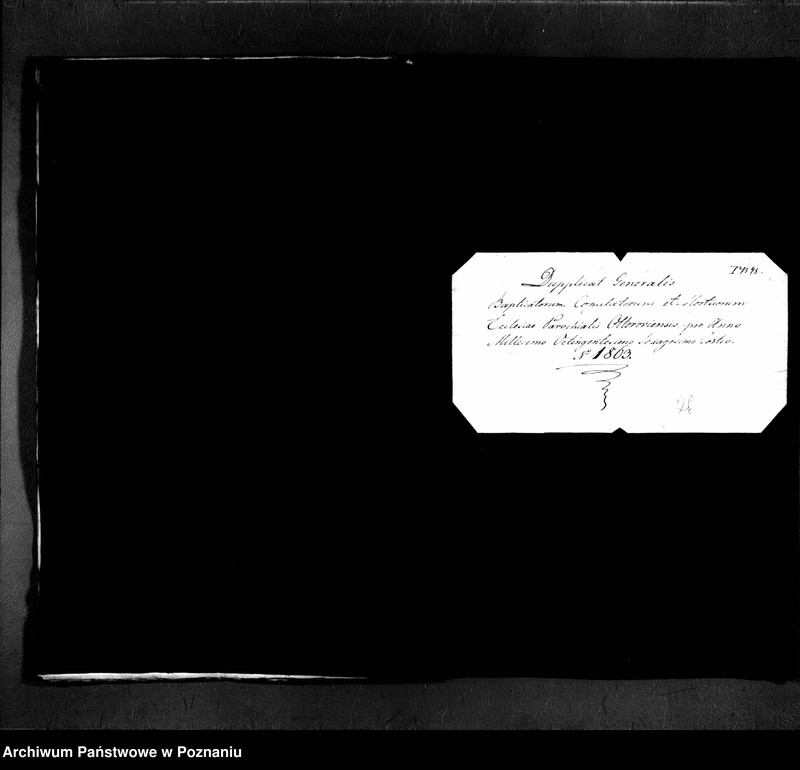 Dupplicat Generalis
Baptisatorum, Copulatorum et Mortuorum
Ecclesiae Parochialis Ottoroviensis, pro Anno
Millesimo Octingentesimo Sexagesimo tertio.
N° 1863.
Archiwum Państwowe w Poznaniu